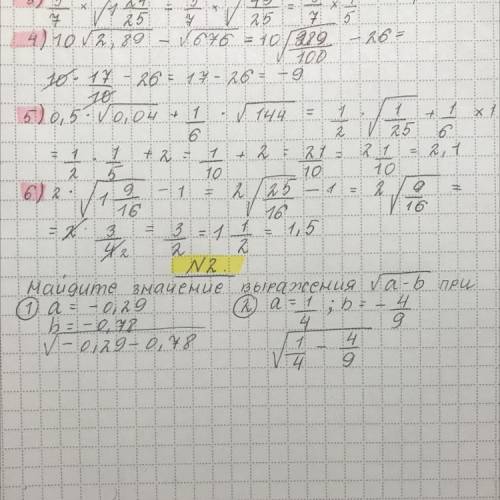 4) 10√2,89 - √676 = 10√289/100 - 26 =
10 · 17/10 - 26 = 17 - 26 = -9
5) 0,5 · √0,04 + 1/6 · √144 = 1/2 · √1/25 + 1/6 × 1
= 1/2 · 1/5 + 2 = 1/10 + 2 = 21/10 = 2 1/10 = 2,1
6) 2 · √1 9/16 - 1 = 2√25/16 - 1 = 2√9/16 =
= 2 3/4 2 = 3/2 = 1 1/2 = 1,5
N2.
Найдите значение выражения √a-b при
① a = -0,29
b = -0,78
√-0,29-0,78
② a = 1/4 ; b = - 4/9
√1/4 - 4/9